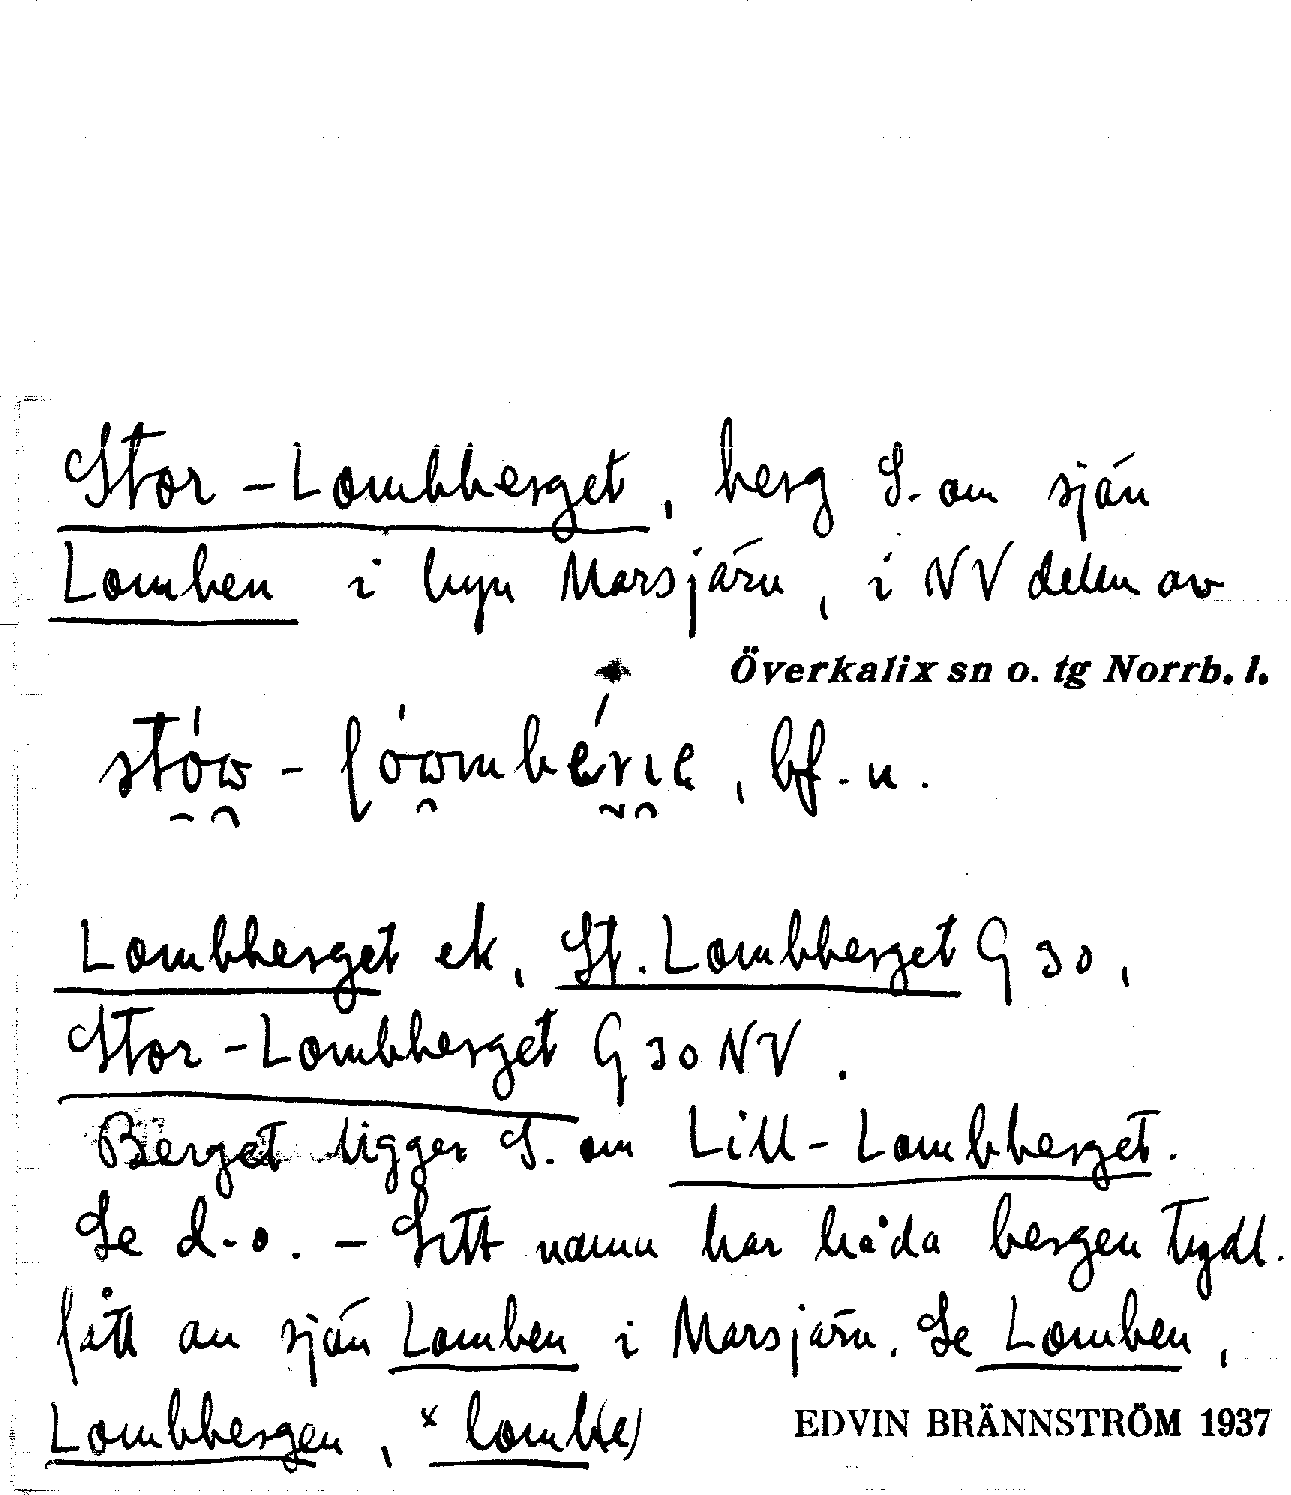 Stor-Lombberget, berg S. om sjön
Lomben i byn Marsjärn, i NV delen av
Överkalix sn o. tg Norrb. l.
bf. n.
Lombberget ek, St. Lombberget G 30,
Stor-Lombberget G 30 NV.
Berget ligger S. om Lill-Lombberget.
Se d-o. - Sitt namn har båda bergen tydl.
fått av sjön Lomben i Marsjärn. Se Lomben,
Lombbergen, *lomb(e)
EDVIN BRÄNNSTRÖM 1937